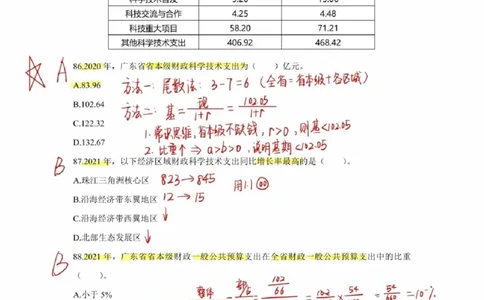 科技交流与合作 4.25 4.48
科技重大项目 58.20 71.21
其他科学技术支出 406.92 468.42
A
86.2020 年，广东省省本级财政科学技术支出为（ ）亿元。
A.83.96 方法一：尾数法：3-7=6（全省=省本级+各区域）
B.102.64 方法二：基=现/1+r=102.05/1+r
C.122.32 1.常识思维，省本级不缺钱，r>0，则基<102.05
D.132.67 2.比重个⇒a>b>0，说明基期<102.05
B 87.2021 年，以下经济区域财政科学技术支出同比增长率最高的是（ ）。
A.珠江三角洲核心区 823→845 用1.1
B.沿海经济带东翼地区 12→15
C.沿海经济带西翼地区↓
D.北部生态发展区↓
B 88.2021 年，广东省省本级财政一般公共预算支出在全省财政一般公共预算支出中的比重
（ ）。
A.小于 5%